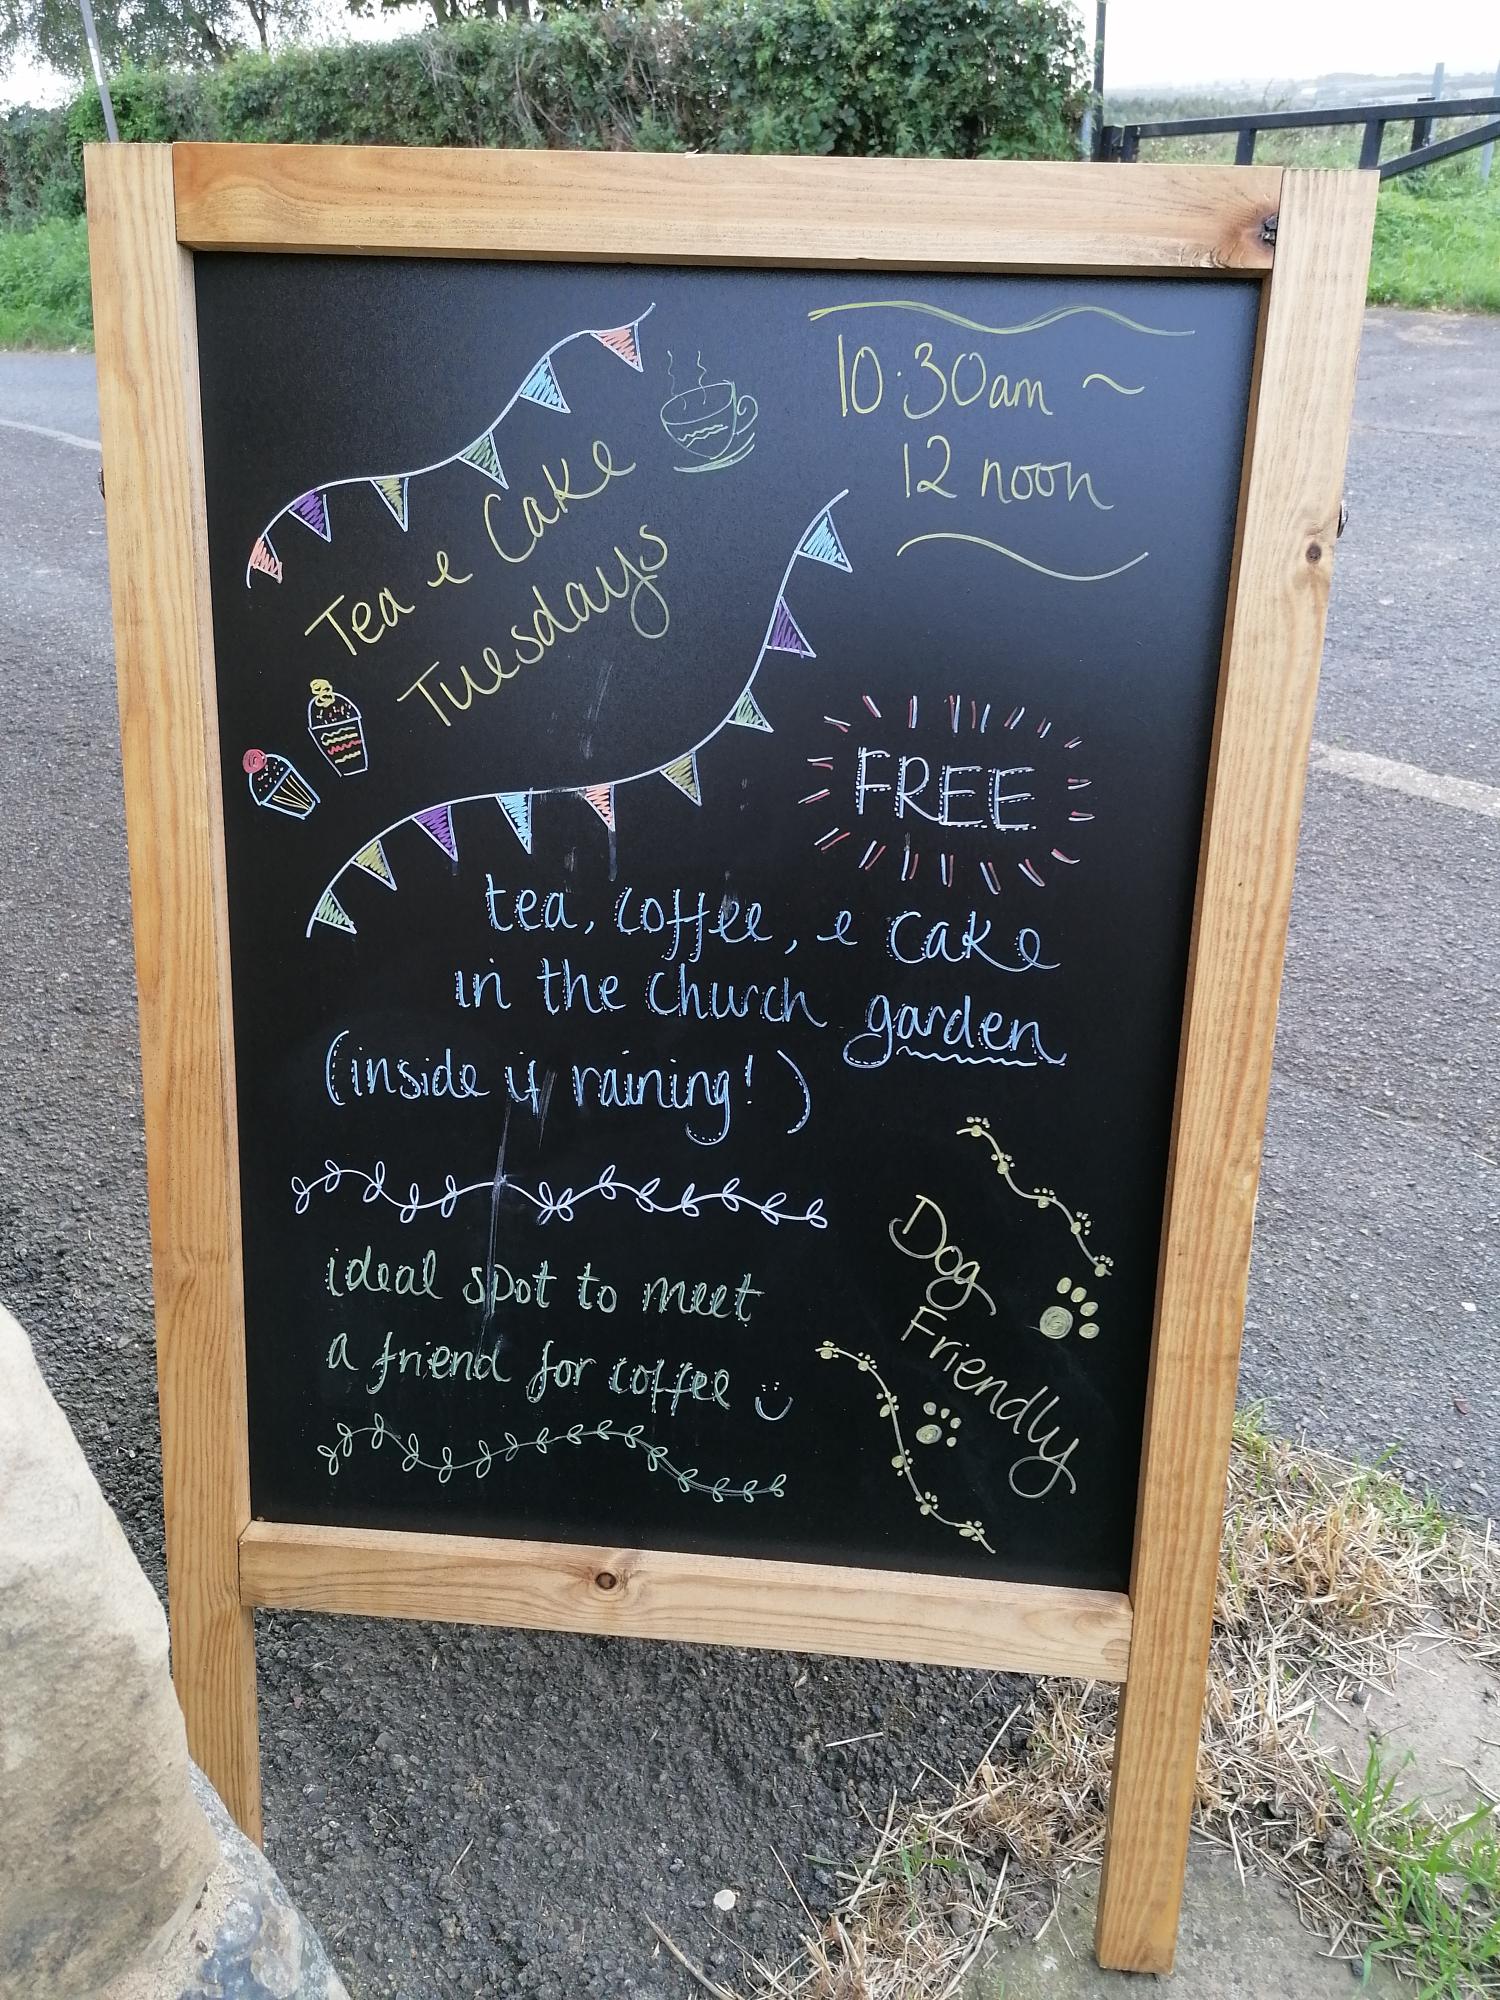 Tea & Cake
Tuesdays
10:30am ~
12 noon
FREE
tea, coffee, & cake
in the church garden
(inside if raining!)
ideal spot to meet
a friend for coffee :)
Dog
Friendly